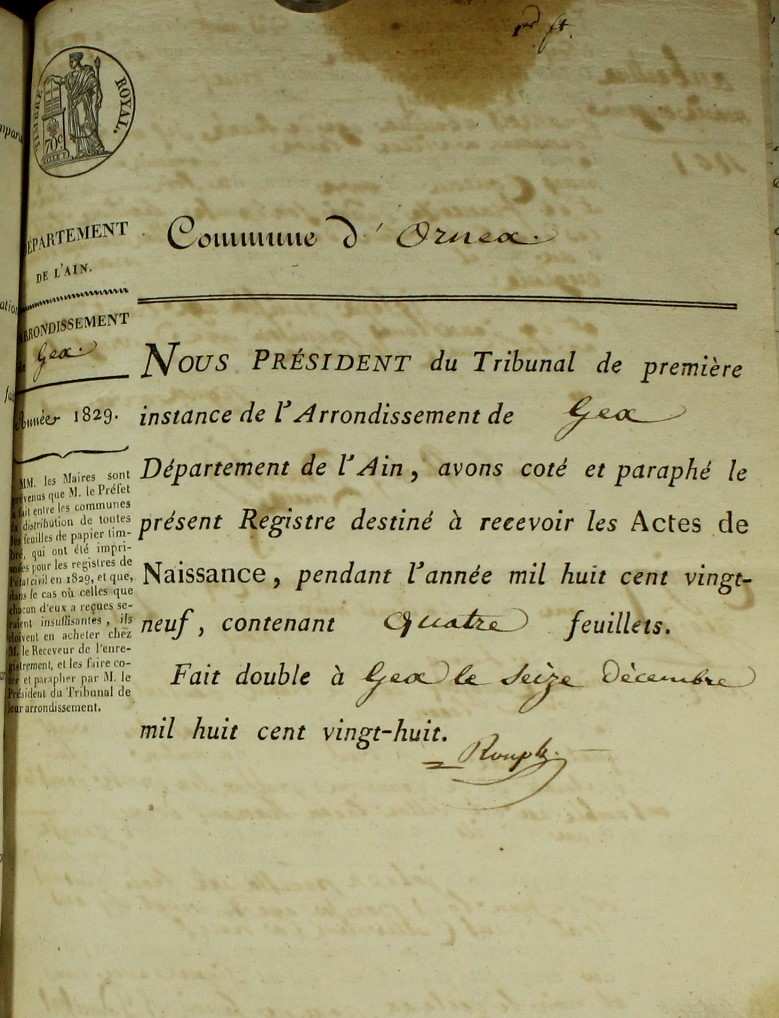 1er ft.
TIMBRE ROYAL.
70c
DÉPARTEMENT
DE L'AIN.
ARRONDISSEMENT
de Gex.
Année 1829.
MM. les Maires sont
prévenus que M. le Préfet
a fait entre les communes
la distribution de toutes
les feuilles de papier tim-
bré, qui ont été impri-
mées pour les registres de
l'état civil en 1829, et que,
dans le cas où celles que
chacun d'eux a reçues se-
raient insuffisantes, ils
doivent en acheter chez
M. le Receveur de l'enre-
gistrement, et les faire co-
ter et parapher par M. le
Président du Tribunal de
leur arrondissement.
Commune d'Ornex.
NOUS PRÉSIDENT du Tribunal de première
instance de l'Arrondissement de Gex
Département de l'Ain, avons coté et paraphé le
présent Registre destiné à recevoir les Actes de
Naissance, pendant l'année mil huit cent vingt-
neuf, contenant quatre feuillets.
Fait double à Gex le seize Décembre
mil huit cent vingt-huit.